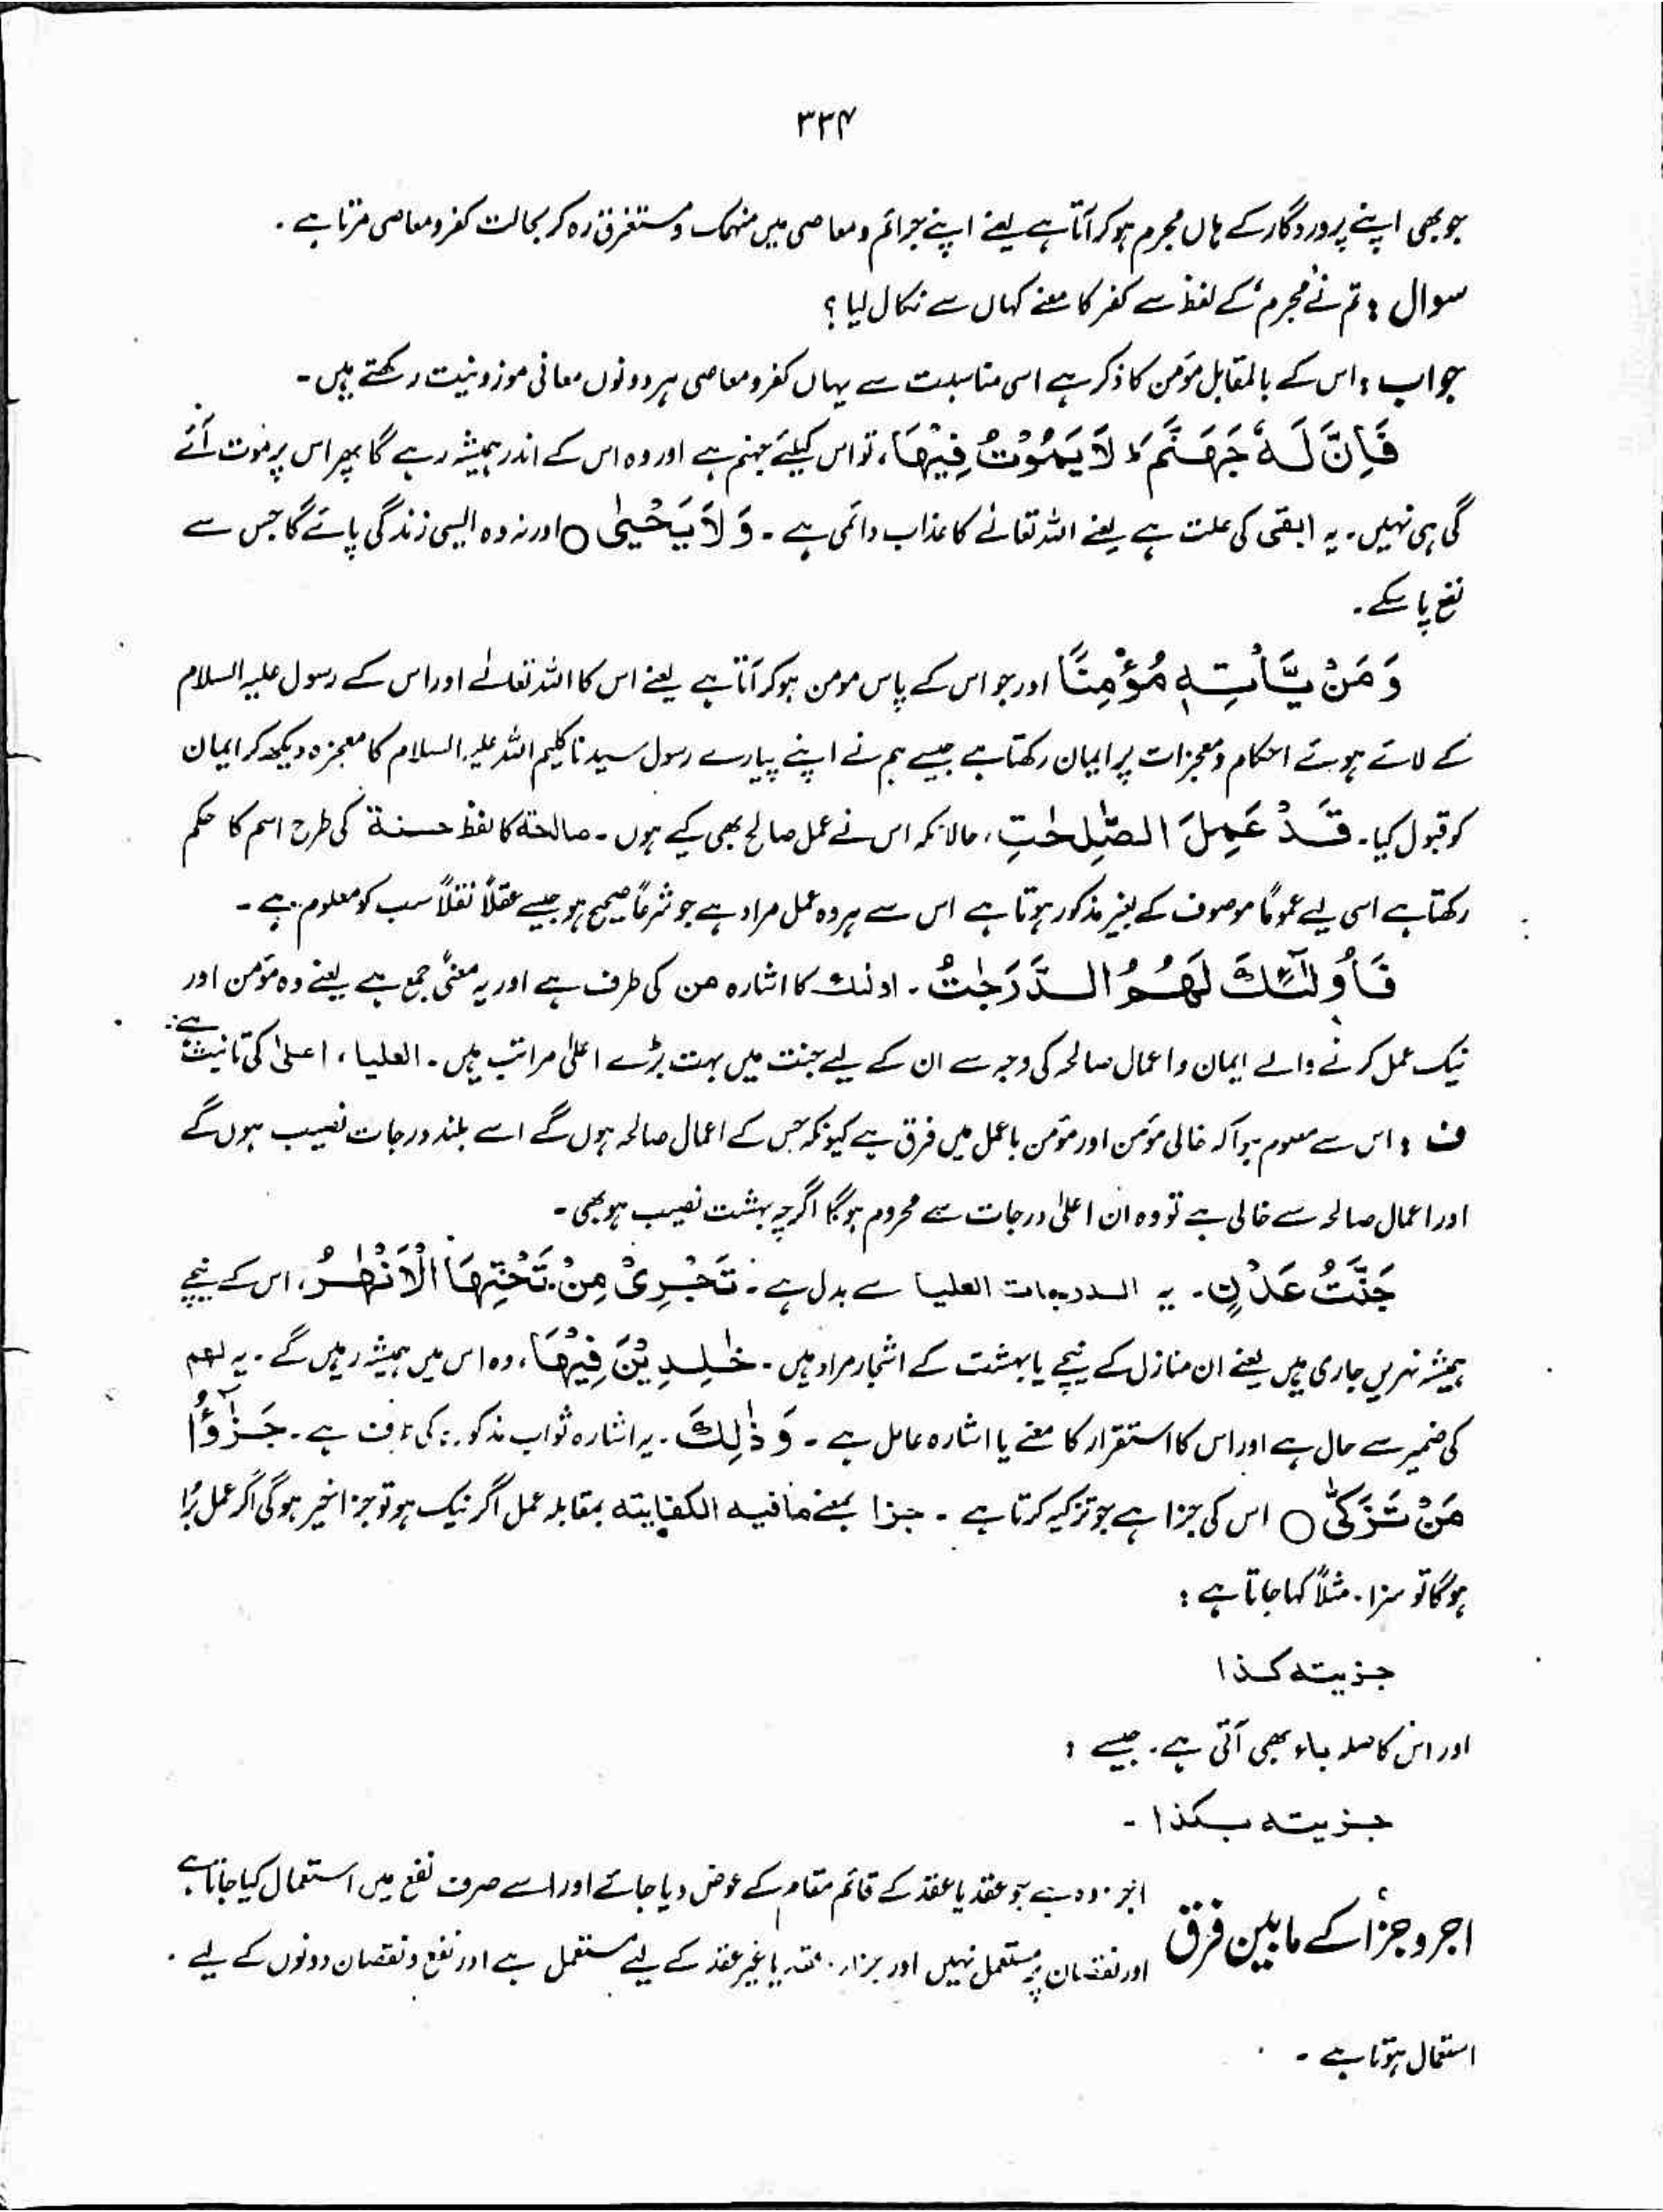 ۳۳۴
جو بھی اپنے پروردگار کے ہاں مجرم ہو کر آتا ہے یعنے اپنے جرائم و معاصی میں منہمک و مستغرق رہ کر بحالت کفر و معاصی مرتا ہے ۔
سوال : تم نے مجرم کے لفظ سے کفر کا معنے کہاں سے نکال لیا ؟
جواب : اس کے بالمقابل مؤمن کا ذکر ہے اسی مناسبت سے یہاں کفر و معاصی ہر دونوں معانی موزونیت رکھتے ہیں ۔
فَاِنَّ لَہٗ جَہَنَّمَ ؕ لَا یَمُوْتُ فِیْہَا ، تو اس کیلئے جہنم ہے اور وہ اس کے اندر ہمیشہ رہے گا پھر اس پر موت آئے
گی ہی نہیں ۔ یہ ابقی کی علت ہے یعنے اللہ تعالےٰ کا عذاب دائمی ہے ۔ وَ لَا یَحْیٰی ○ اور نہ وہ ایسی زندگی پائے گا جس سے
نفع پا سکے ۔
وَ مَنْ یَّاْتِہٖ مُؤْمِنًا اور جو اس کے پاس مومن ہو کر آتا ہے یعنے اس کا اللہ تعالےٰ اور اس کے رسول علیہ السلام
کے لائے ہوئے احکام و معجزات پر ایمان رکھتا ہے جیسے ہم نے اپنے پیارے رسول سیدنا کلیم اللہ علیہ السلام کا معجزہ دیکھ کر ایمان
کو قبول کیا ۔ قَدْ عَمِلَ الصّٰلِحٰتِ ، حالانکہ اس نے عمل صالح بھی کیے ہوں ۔ صالحۃ کا لفظ حسنۃ کی طرح اسم کا حکم
رکھتا ہے اسی لیے عموماً موصوف کے بغیر مذکور ہوتا ہے اس سے ہر وہ عمل مراد ہے جو شرعاً صحیح ہو جیسے عقلاً نقلاً سب کو معلوم ہے ۔
فَاُولٰٓئِکَ لَہُمُ الدَّرَجٰتُ ۔ اولٰئک کا اشارہ من کی طرف ہے اور یہ معنًی جمع ہے یعنے وہ مؤمن اور
نیک عمل کرنے والے ایمان و اعمال صالحہ کی وجہ سے ان کے لیے جنت میں بہت بڑے اعلیٰ مراتب ہیں ۔ العلیا ، اعلیٰ کی تانیث ہے ۔
ف : اس سے معلوم ہوا کہ خالی مؤمن اور مؤمن باعمل میں فرق ہے کیونکہ جس کے اعمال صالحہ ہوں گے اسے بلند درجات نصیب ہوں گے
اور اعمال صالحہ سے خالی ہے تو وہ ان اعلیٰ درجات سے محروم ہوگا اگرچہ بہشت نصیب ہو بھی ۔
جَنّٰتُ عَدْنٍ ۔ یہ الدرجات العلیا سے بدل ہے ۔ تَجْرِیْ مِنْ تَحْتِہَا الْاَنْہٰرُ ، اس کے نیچے
ہمیشہ نہریں جاری ہیں یعنے ان منازل کے نیچے یا بہشت کے اشجار مراد ہیں ۔ خٰلِدِیْنَ فِیْہَا ، وہ اس میں ہمیشہ رہیں گے ۔ یہ لھم
کی ضمیر سے حال ہے اور اس کا استقرار کا معنے یا اشارہ عامل ہے ۔ وَ ذٰلِکَ ۔ یہ اشارہ ثواب مذکورہ کی طرف ہے ۔ جَزٰٓؤُا
مَنْ تَزَکّٰی ○ اس کی جزا ہے جو تزکیہ کرتا ہے ۔ جزا بمعنے مافیہ الکفایتہ بمقابلہ عمل اگر نیک ہو تو جزا خیر ہوگی اگر عمل بُرا
ہوگا تو سزا ۔ مثلاً کہا جاتا ہے :
جزیتہ کذا
اور اس کا صلہ باء بھی آتی ہے ۔ جیسے :
جزیتہ بکذا ۔
اجر و جزأ کے مابین فرق
اجر وہ ہے جو عقد یا عقد کے قائم مقام کے عوض دیا جائے اور اسے صرف نفع میں استعمال کیا جاتا ہے
اور نقصان پر مستعمل نہیں اور جزاء ۔ عقد یا غیر عقد کے لیے مستعمل ہے اور نفع و نقصان دونوں کے لیے ۔
استعمال ہوتا ہے ۔